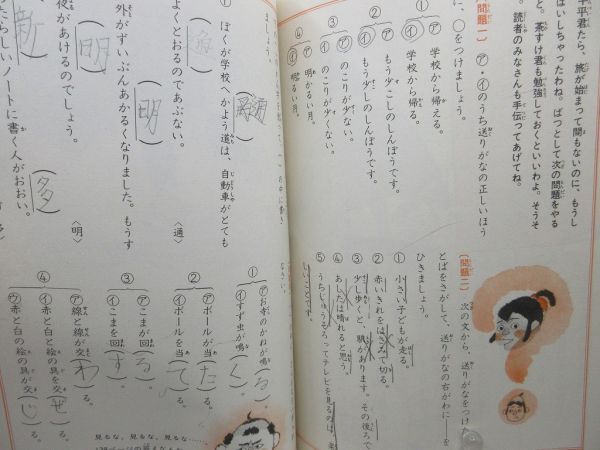 平平君たら、旅が始まって間もないのに、もうし
ぱいしちゃったわね。ばつとして次の問題をやる
と。茶すけ君も勉強しておくといいわよ。そうそ
。読者のみなさんも手伝ってあげてね。
〔問題一〕 ア・イのうち送りがなの正しいほう
に、○をつけましょう。
① ア 学校から帰える。
イ 学校から帰る。
② ア もう少こしのしんぼうです。
イ もう少しのしんぼうです。
③ ア のこりが少ない。
イ のこりが少くない。
④ ア 明かるい月。
イ 明るい月。
〔問題二〕 次の文から、送りがなをつけた
とばをさがして、送りがなの右がわに──を
ひきましょう。
① 小さい子どもが走る。
② 赤いきれをはさみで切る。
③ 少し歩くと、駅があります。その後ろで
④ あしたは晴れると思う。
⑤ うちじゅうそろってテレビを見るのは、楽
しいことです。
① ぼくが学校へかよう道は、自動車がとても
よくとおるのであぶない。
〈通〉
(通)
外がずいぶんあかるくなりました。もうす
夜があけるのでしょう。
〈明〉
(明)
(明)
たらしいノートに書く人がおおい。
(新)
(多)
① ア お寺のかねが鳴(る)る。
イ すず虫が鳴(く)。
② ア ボールが当(た)る。
イ ボールを当(て)る。
③ ア こまが回(る)。
イ こまを回(す)。
④ ア 線と線が交(わ)る。
イ 赤と白と絵の具を交(ぜ)る。
ウ 赤と白の絵の具が交(じ)る。
見るな、見るな、見るな……